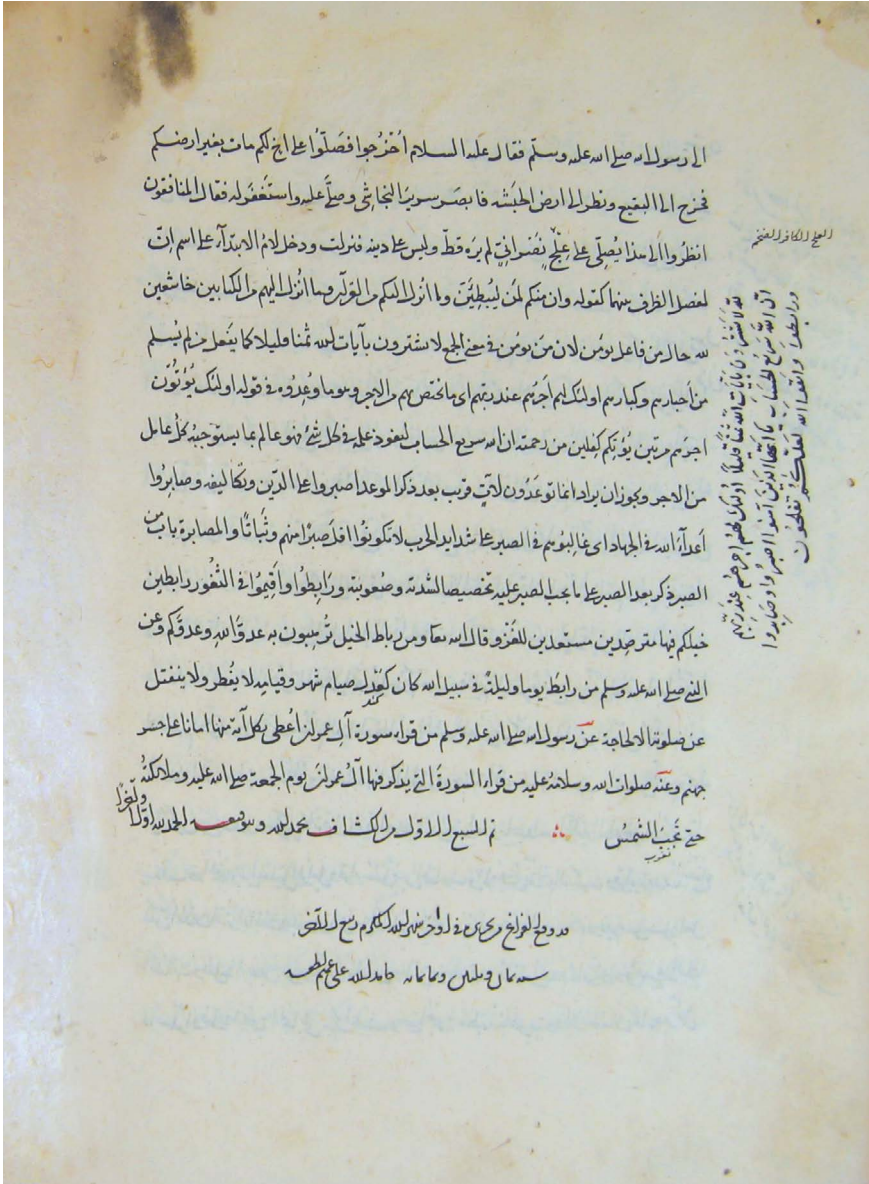 الى رسول الله صلى الله عليه وسلم فقال عليه السلام اُخْرُجوا فَصَلّوُا على اخٍ لكم مات بغير ارضكم
فخرج الى البقيع ونظر الى ارض الحَبشه فابصر سرير النجاشى وصلّى عليه واستغفر له فقال المنافقون
انظروا الى هذا يُصلّى على عِلْجٍ نَصْرانىّ لم يره قطّ وليس على دينه فنزلت ودخل لام الابتدآء على اسم انّ
لفصل الظرف بينهما كقوله وان منكم لمن ليُبطِّئنّ وما اُنزل اليكم من القرآن وما اُنْزل اليهم من الكتابين خاشعين
لله حال من فاعل يؤمن لان مَن يؤمن فى معنى الجمع لا يشترون بآيات الله ثمنا قليلا كما يفعل من لم يُسلم
من اَحبارهم وكبارهم اولئك لهم اَجرُهم عند ربّهم اى ما يختص بهم من الاجر وهو ما وُعِدُوه فى قوله اولئك يُؤْتَوْن
اجرَهم مرتين يُؤتِكم كِفلين من رحمته ان الله سريع الحساب لنفوذ علمه فى كل شئ فهو عالم بما يستوجبه كلُّ عامل
من الاجر ويجوز ان يراد انما توعَدُون لآتٍ قريب بعد ذكر الموعد اصبروا على الدّين وتكاليفه وصابِرُوا
اَعدآءَ الله فى الجهاد اى غالِبُوهم فى الصبر على شدايد الحرب لا تكونُوا اقلّ صبْرا منهم وثَباتًا والمصابرة باب من
الصبر ذكر بعد الصبر على ما يجب الصبر عليه تخصيصا لشدته وصُعوبته ورَابِطُوا واَقيمُوا فى الثُغُور رابطين
خيلكم فيها مترصّدين مستعدين للغَزو قال الله تعا ومن رباط الخيل تُرهبون به عدوَّ اللهِ وعدوَّكم وعن
النبى صلى الله عليه وسلم من رابَط يوما وليلةً فى سبيل الله كان كعِدْل صيام شهر وقيامه لا يُفطر ولا ينفتل
عن صلوته الا لحاجة عن رسول الله صلى الله عليه وسلم من قراء سورة آل عمران اُعطى بكل آية منها امانا على جسر
جهنم وعنه صلوات الله وسلامه عليه من قراء السورةَ التى يذكر فيها آل عمران يوم الجمعة صلى الله عليه وملائكتُه
حتى تَجبَ الشمسُ تم السبع الاول من الكشاف بحمد الله وتوفيقه الحمد لله اوّلا
وآخرا
تغرب
وقع الفراغ من تحريره فى اواخر شهر الله المكرم ربيع الآخر
سنه ثمان وثلثين وثمانمائة حامدا لله على نعمه
العلج الكافر الضخم
لله لا يَشترُونَ بآيَات الله ثمنًا قليلًا اولئك لهُم اجرهُم عِندَ ربّهم
انّ اللهَ سَرِيعُ الحِسَاب يا ايّها الّذينَ آمنوا اصبرُوا وصَابروا
ورابطُوا واتقوا الله لعلّكم تفلحُون